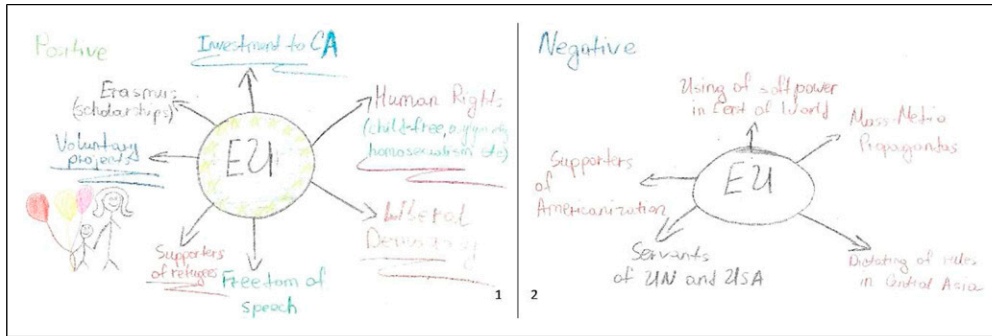 Positive
Investment to CA
Erasmus
(scholarships)
Human Rights
(child-free,
homosexualism etc)
Voluntary
projects
EU
Liberal
Democracy
Supporters
of refugees
Freedom of
speech
1
Negative
Using of soft power
in Rest of World
Mass-Media
Propagandas
Supporters
of
Americanization
EU
Servants
of UN and USA
Dictating of rules
in Central Asia
2